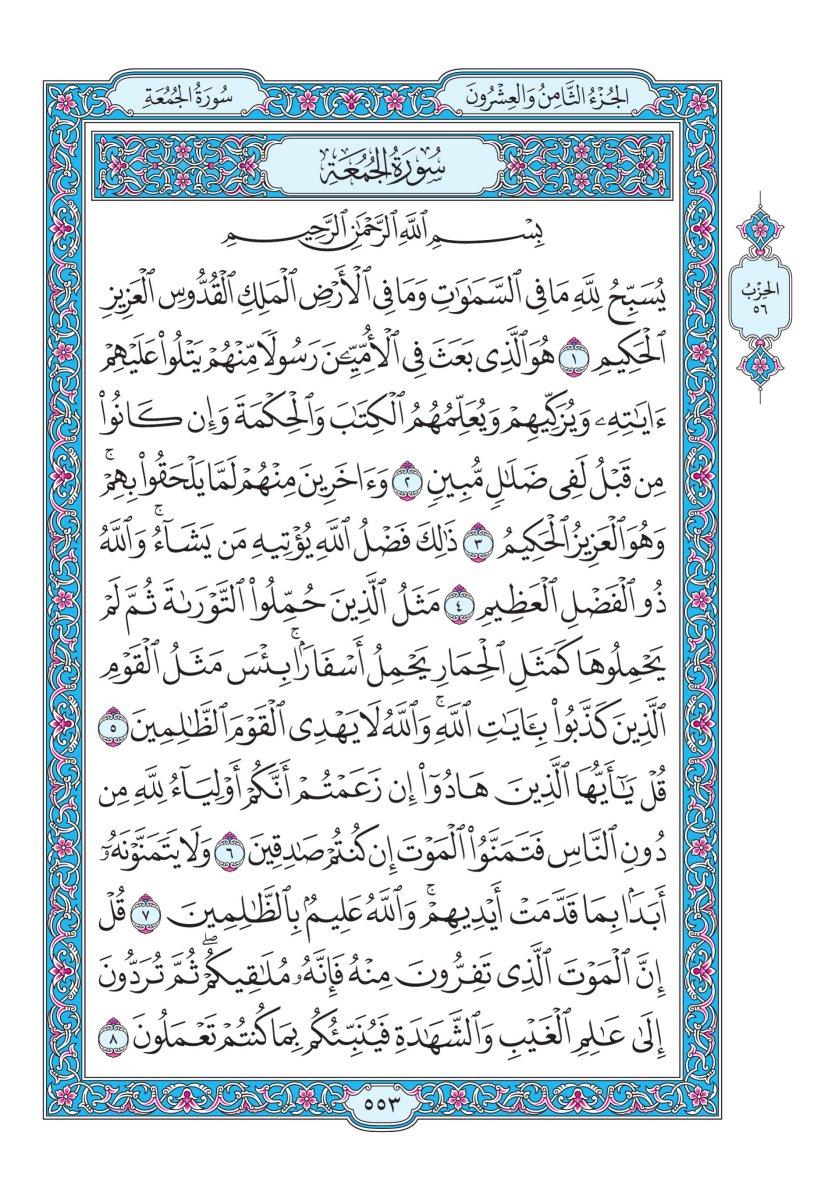 الجُزْءُ الثَّامِنُ وَالعِشْرُونَ
سُورَةُ الجُمُعَةِ
سُورَةُ الجُمُعَةِ
بِسْمِ ٱللَّهِ ٱلرَّحْمَٰنِ ٱلرَّحِيمِ
يُسَبِّحُ لِلَّهِ مَا فِى ٱلسَّمَٰوَٰتِ وَمَا فِى ٱلْأَرْضِ ٱلْمَلِكِ ٱلْقُدُّوسِ ٱلْعَزِيزِ
ٱلْحَكِيمِ ١ هُوَ ٱلَّذِى بَعَثَ فِى ٱلْأُمِّيِّـۧنَ رَسُولًا مِّنْهُمْ يَتْلُوا۟ عَلَيْهِمْ
ءَايَٰتِهِۦ وَيُزَكِّيهِمْ وَيُعَلِّمُهُمُ ٱلْكِتَٰبَ وَٱلْحِكْمَةَ وَإِن كَانُوا۟
مِن قَبْلُ لَفِى ضَلَٰلٍ مُّبِينٍ ٢ وَءَاخَرِينَ مِنْهُمْ لَمَّا يَلْحَقُوا۟ بِهِمْ ۚ
وَهُوَ ٱلْعَزِيزُ ٱلْحَكِيمُ ٣ ذَٰلِكَ فَضْلُ ٱللَّهِ يُؤْتِيهِ مَن يَشَآءُ ۚ وَٱللَّهُ
ذُو ٱلْفَضْلِ ٱلْعَظِيمِ ٤ مَثَلُ ٱلَّذِينَ حُمِّلُوا۟ ٱلتَّوْرَىٰةَ ثُمَّ لَمْ
يَحْمِلُوهَا كَمَثَلِ ٱلْحِمَارِ يَحْمِلُ أَسْفَارًۢا ۚ بِئْسَ مَثَلُ ٱلْقَوْمِ
ٱلَّذِينَ كَذَّبُوا۟ بِـَٔايَٰتِ ٱللَّهِ ۚ وَٱللَّهُ لَا يَهْدِى ٱلْقَوْمَ ٱلظَّٰلِمِينَ ٥
قُلْ يَٰٓأَيُّهَا ٱلَّذِينَ هَادُوٓا۟ إِن زَعَمْتُمْ أَنَّكُمْ أَوْلِيَآءُ لِلَّهِ مِن
دُونِ ٱلنَّاسِ فَتَمَنَّوُا۟ ٱلْمَوْتَ إِن كُنتُمْ صَٰدِقِينَ ٦ وَلَا يَتَمَنَّوْنَهُۥٓ
أَبَدًۢا بِمَا قَدَّمَتْ أَيْدِيهِمْ ۚ وَٱللَّهُ عَلِيمٌۢ بِٱلظَّٰلِمِينَ ٧ قُلْ
إِنَّ ٱلْمَوْتَ ٱلَّذِى تَفِرُّونَ مِنْهُ فَإِنَّهُۥ مُلَٰقِيكُمْ ۖ ثُمَّ تُرَدُّونَ
إِلَىٰ عَٰلِمِ ٱلْغَيْبِ وَٱلشَّهَٰدَةِ فَيُنَبِّئُكُم بِمَا كُنتُمْ تَعْمَلُونَ ٨
الحِزْبُ
٥٦
٥٥٣